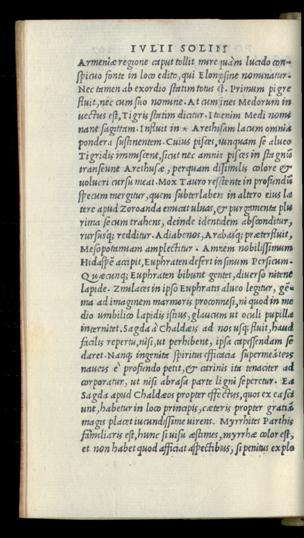 IVLII SOLINI
Armeniæ regione caput tollit mire quàm lucido con-
spicuo fonte in loco edito, qui Elongsine nominatur.
Nec tamen ab exordio statim totus est. Primum pigre
fluit, nec cum suo nomine. At cum ines Medorum in
uectus est, Tigris statim dicitur. Ita enim Medi nomi
nant sagittam. Influit in * Arethisam lacum omnia
pondera sustinentem. Cuius pisces, nunquam se alueo
Tigridis immiscent, sicut nec amnis pisces in stagnũ
transeunt Arethusæ, per quam dissimilis colore &
uolucri cursu meat. Mox Tauro resistente in profundũ
specum mergitur, quem subterlabens in altero eius la
tere apud Zoroanda emicat uluas, & purgamenta plu
rima secum trahens, deinde identidem absconditur,
rursusq; redditur. Adiabenos, Arabasq; præterfluit,
Mesopotamiam amplectitur. Amnem nobilissimum
Hidaspẽ accipit, Euphraten defert in sinum Persicum.
Quæcunq; Euphraten bibunt gentes, diuerso nitent
lapide. Zmilaces in ipso Euphratis alueo legitur, gẽ-
ma ad imaginem marmoris proconnesi, ni quod in me
dio umbilico lapidis istius, glaucum ut oculi pupilla
internitet. Sagda à Chaldæis ad nos usq; fluit, haud
facilis repertu, nisi, ut perhibent, ipsa capessendam se
daret. Nanq; ingenita spiritus efficacia supermeãteis
naueis è profundo petit, & carinis ita tenaciter ad
corporatur, ut nisi abrasa parte ligni separetur. Ea
Sagda apud Chaldæos propter effectus, quos ex ea sci
unt, habetur in loco principis, cæteris propter gratiã
magis placet iucundissime uirens. Myrrhites Parthis
familiaris est, hunc si uisu æstimes, myrrhæ color est,
et non habet quod afficiat aspectibus, si penitus explo